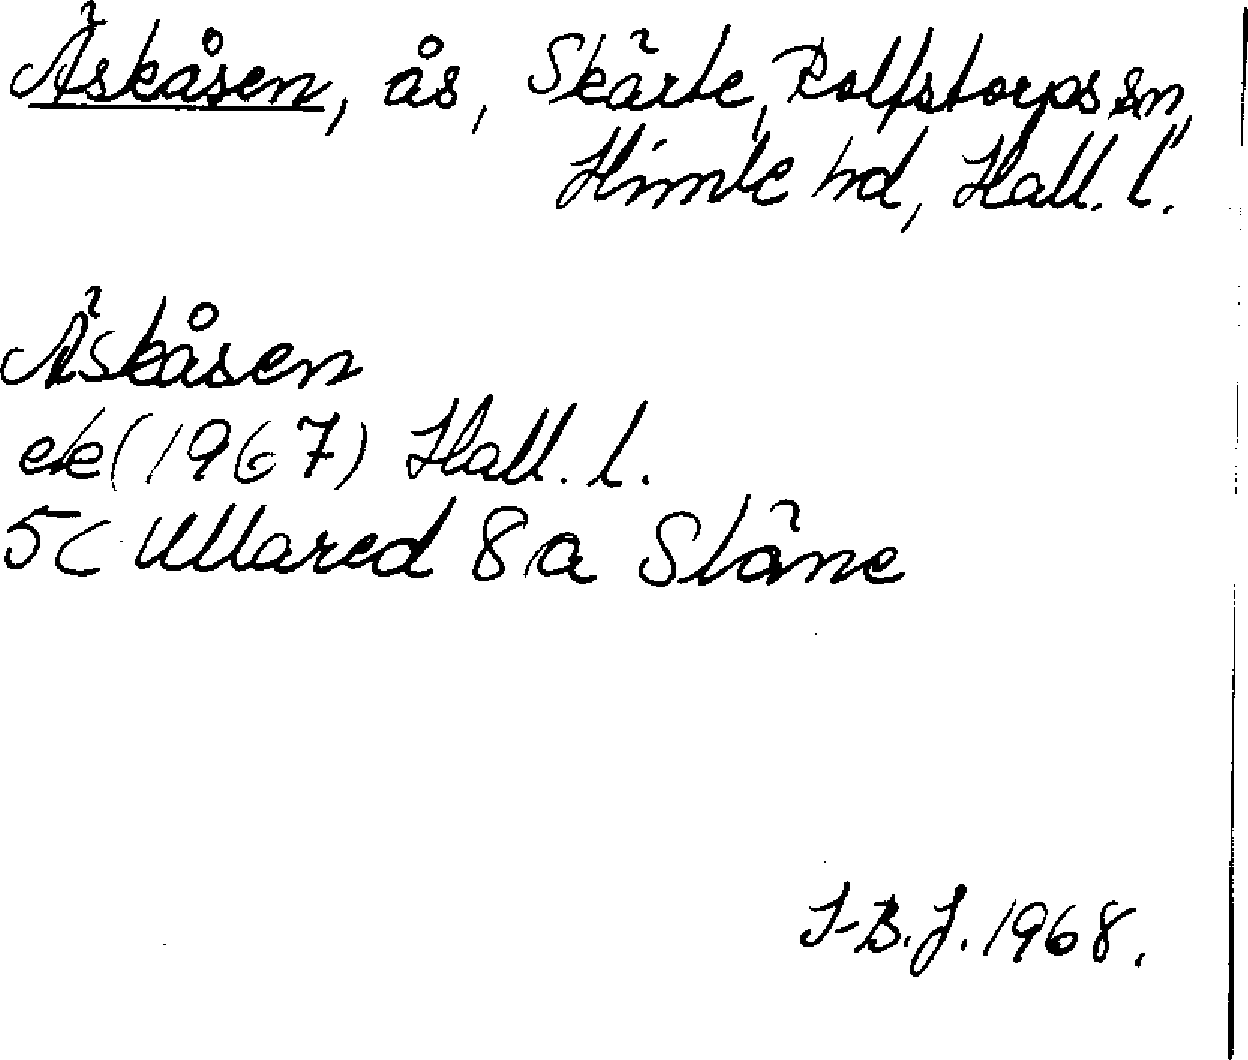 Äskåsen, ås, Skärte, Rolfstorps sn,
Himle hd, Hall. l.
Äskåsen
ek (1967) Hall. l.
5C Ullared 8 a Släne
J-B. J. 1968.